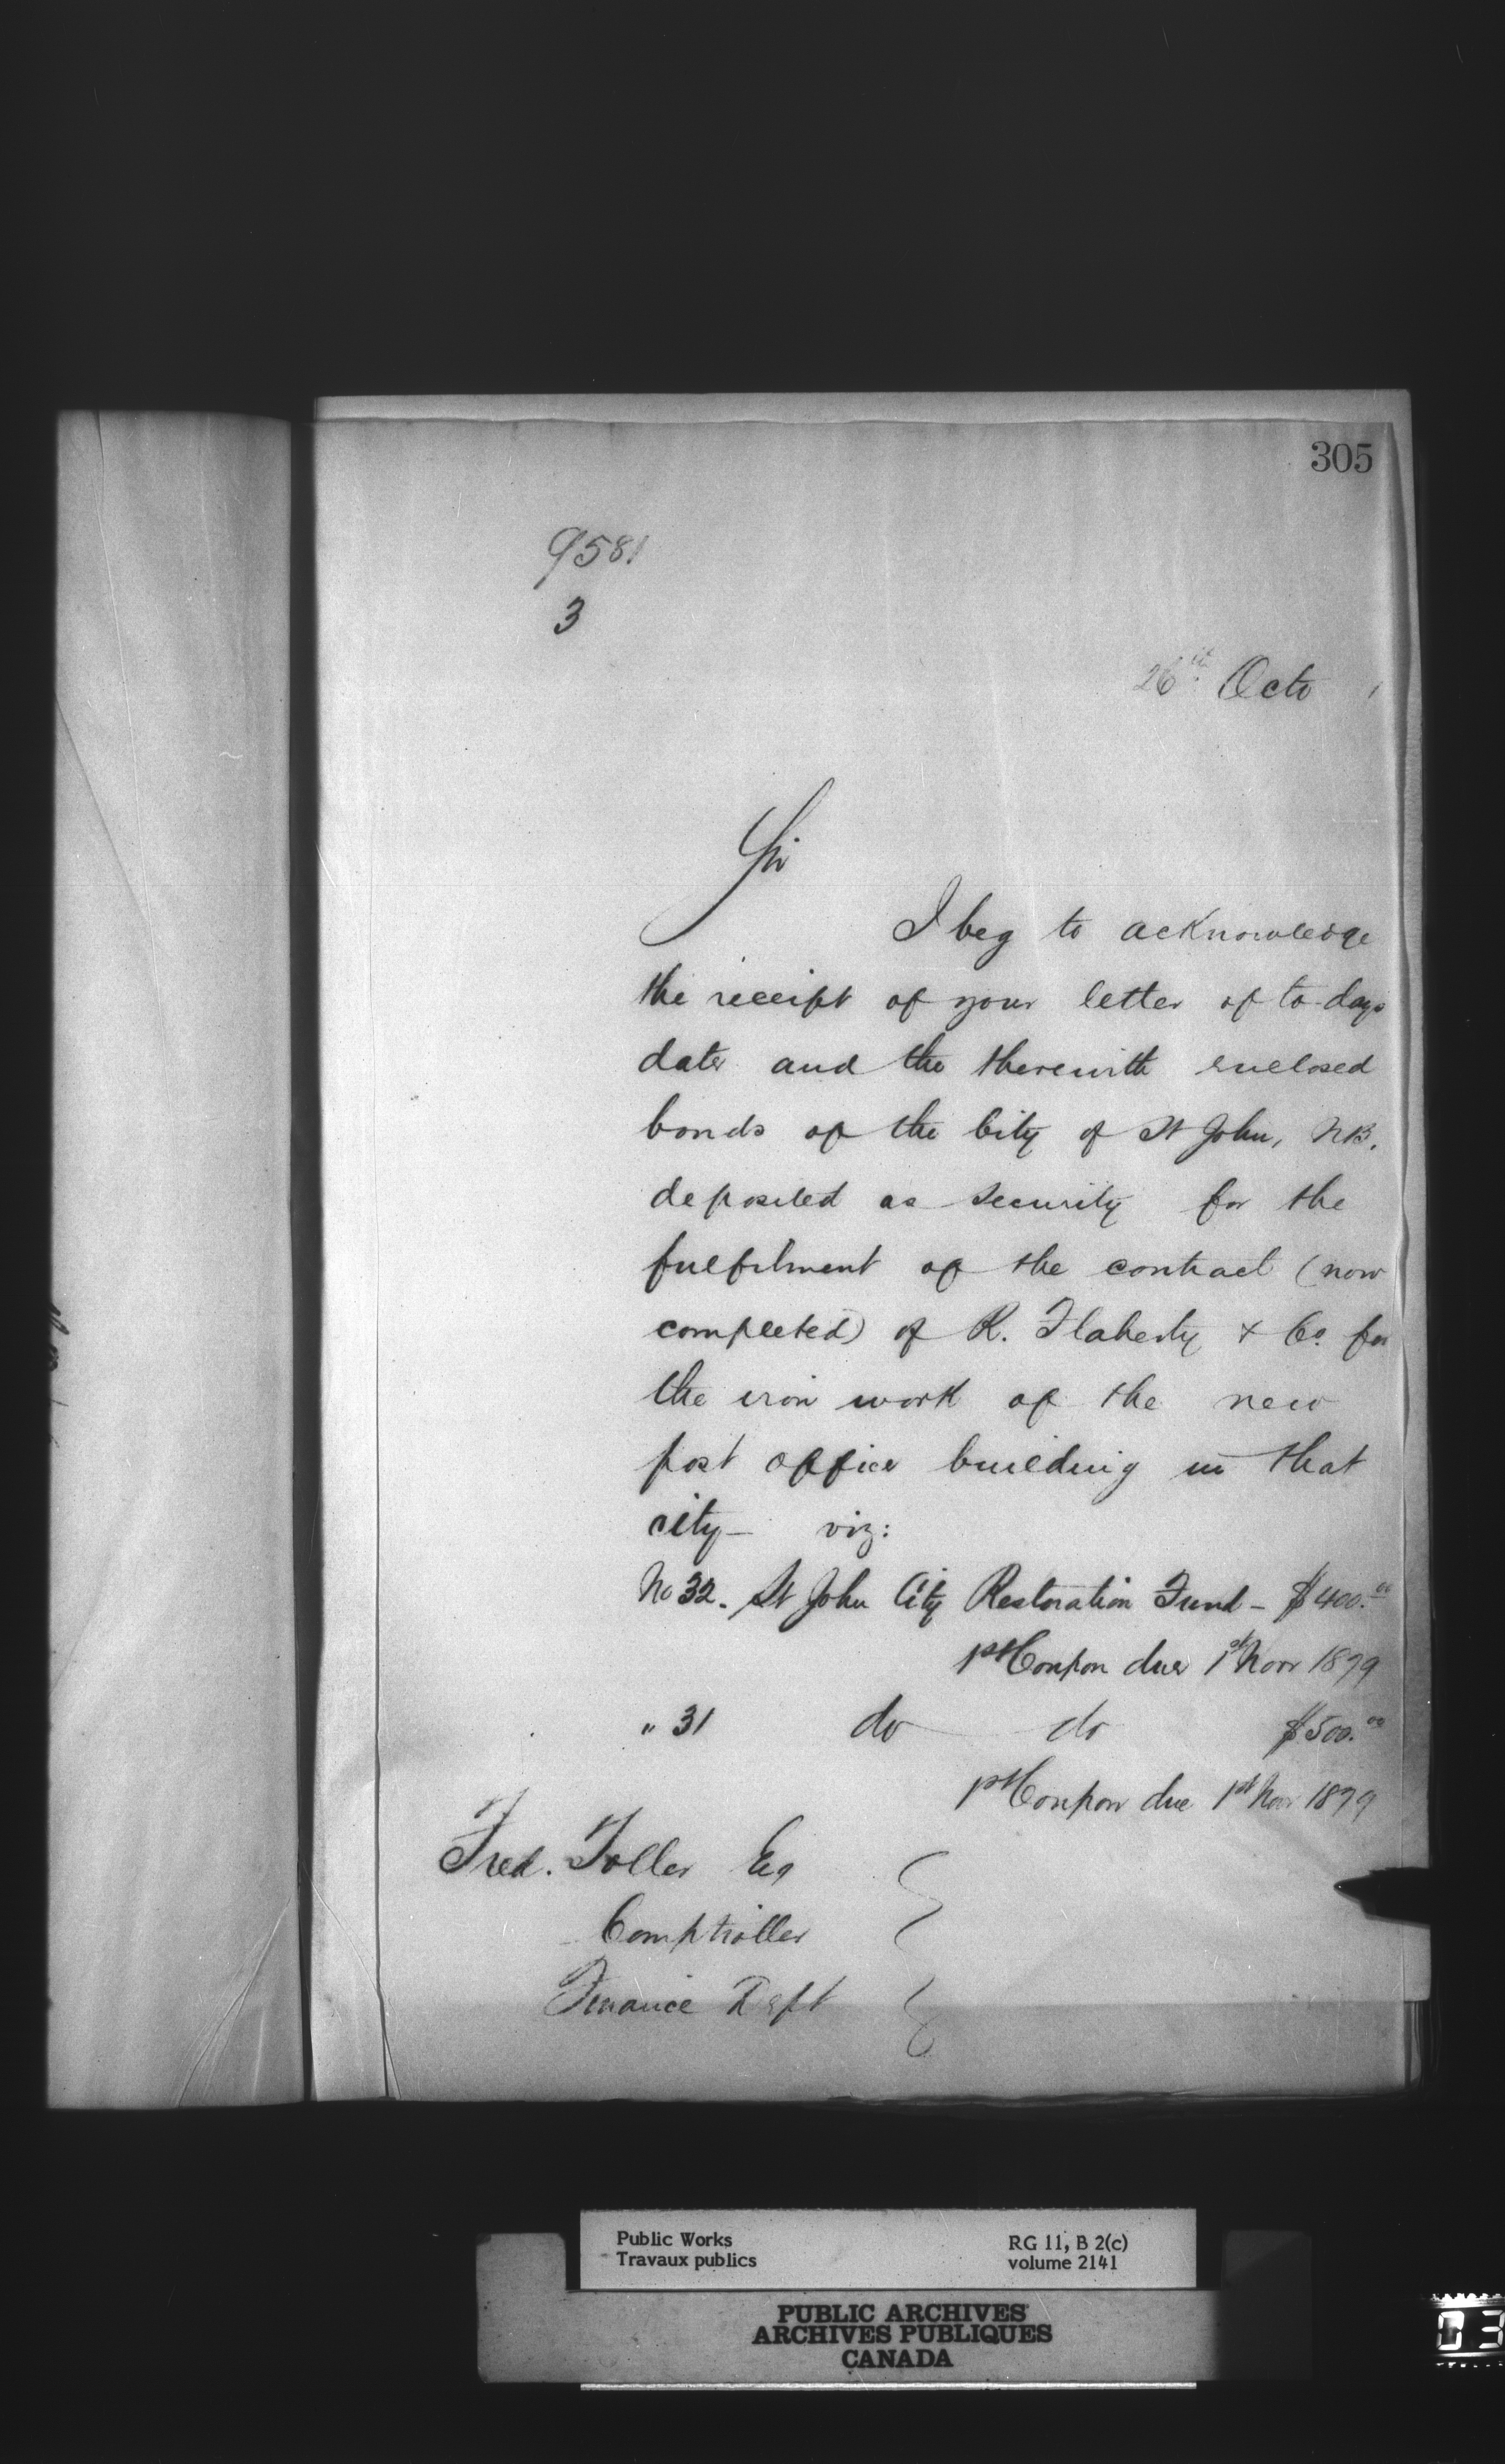 305
9581
3
26th Octo 1
Sir
I beg to acknowledge
the receipt of your letter of to-days
date and the therewith enclosed
bonds of the City of St John, NB.
deposited as security for the
fulfilment of the contract (now
completed) of R. Flaherty & Co. for
the iron work of the new
post office building in that
city— viz:
No 32. St John City Restoration Fund – $400.00
1st Coupon due 1st Novr 1879
" 31 do do $500.00
1st Coupon due 1st Novr 1879
Fred. Toller Esq
Comptroller
Finance Dept
Public Works
Travaux publics
RG 11, B 2(c)
volume 2141
PUBLIC ARCHIVES
ARCHIVES PUBLIQUES
CANADA
03